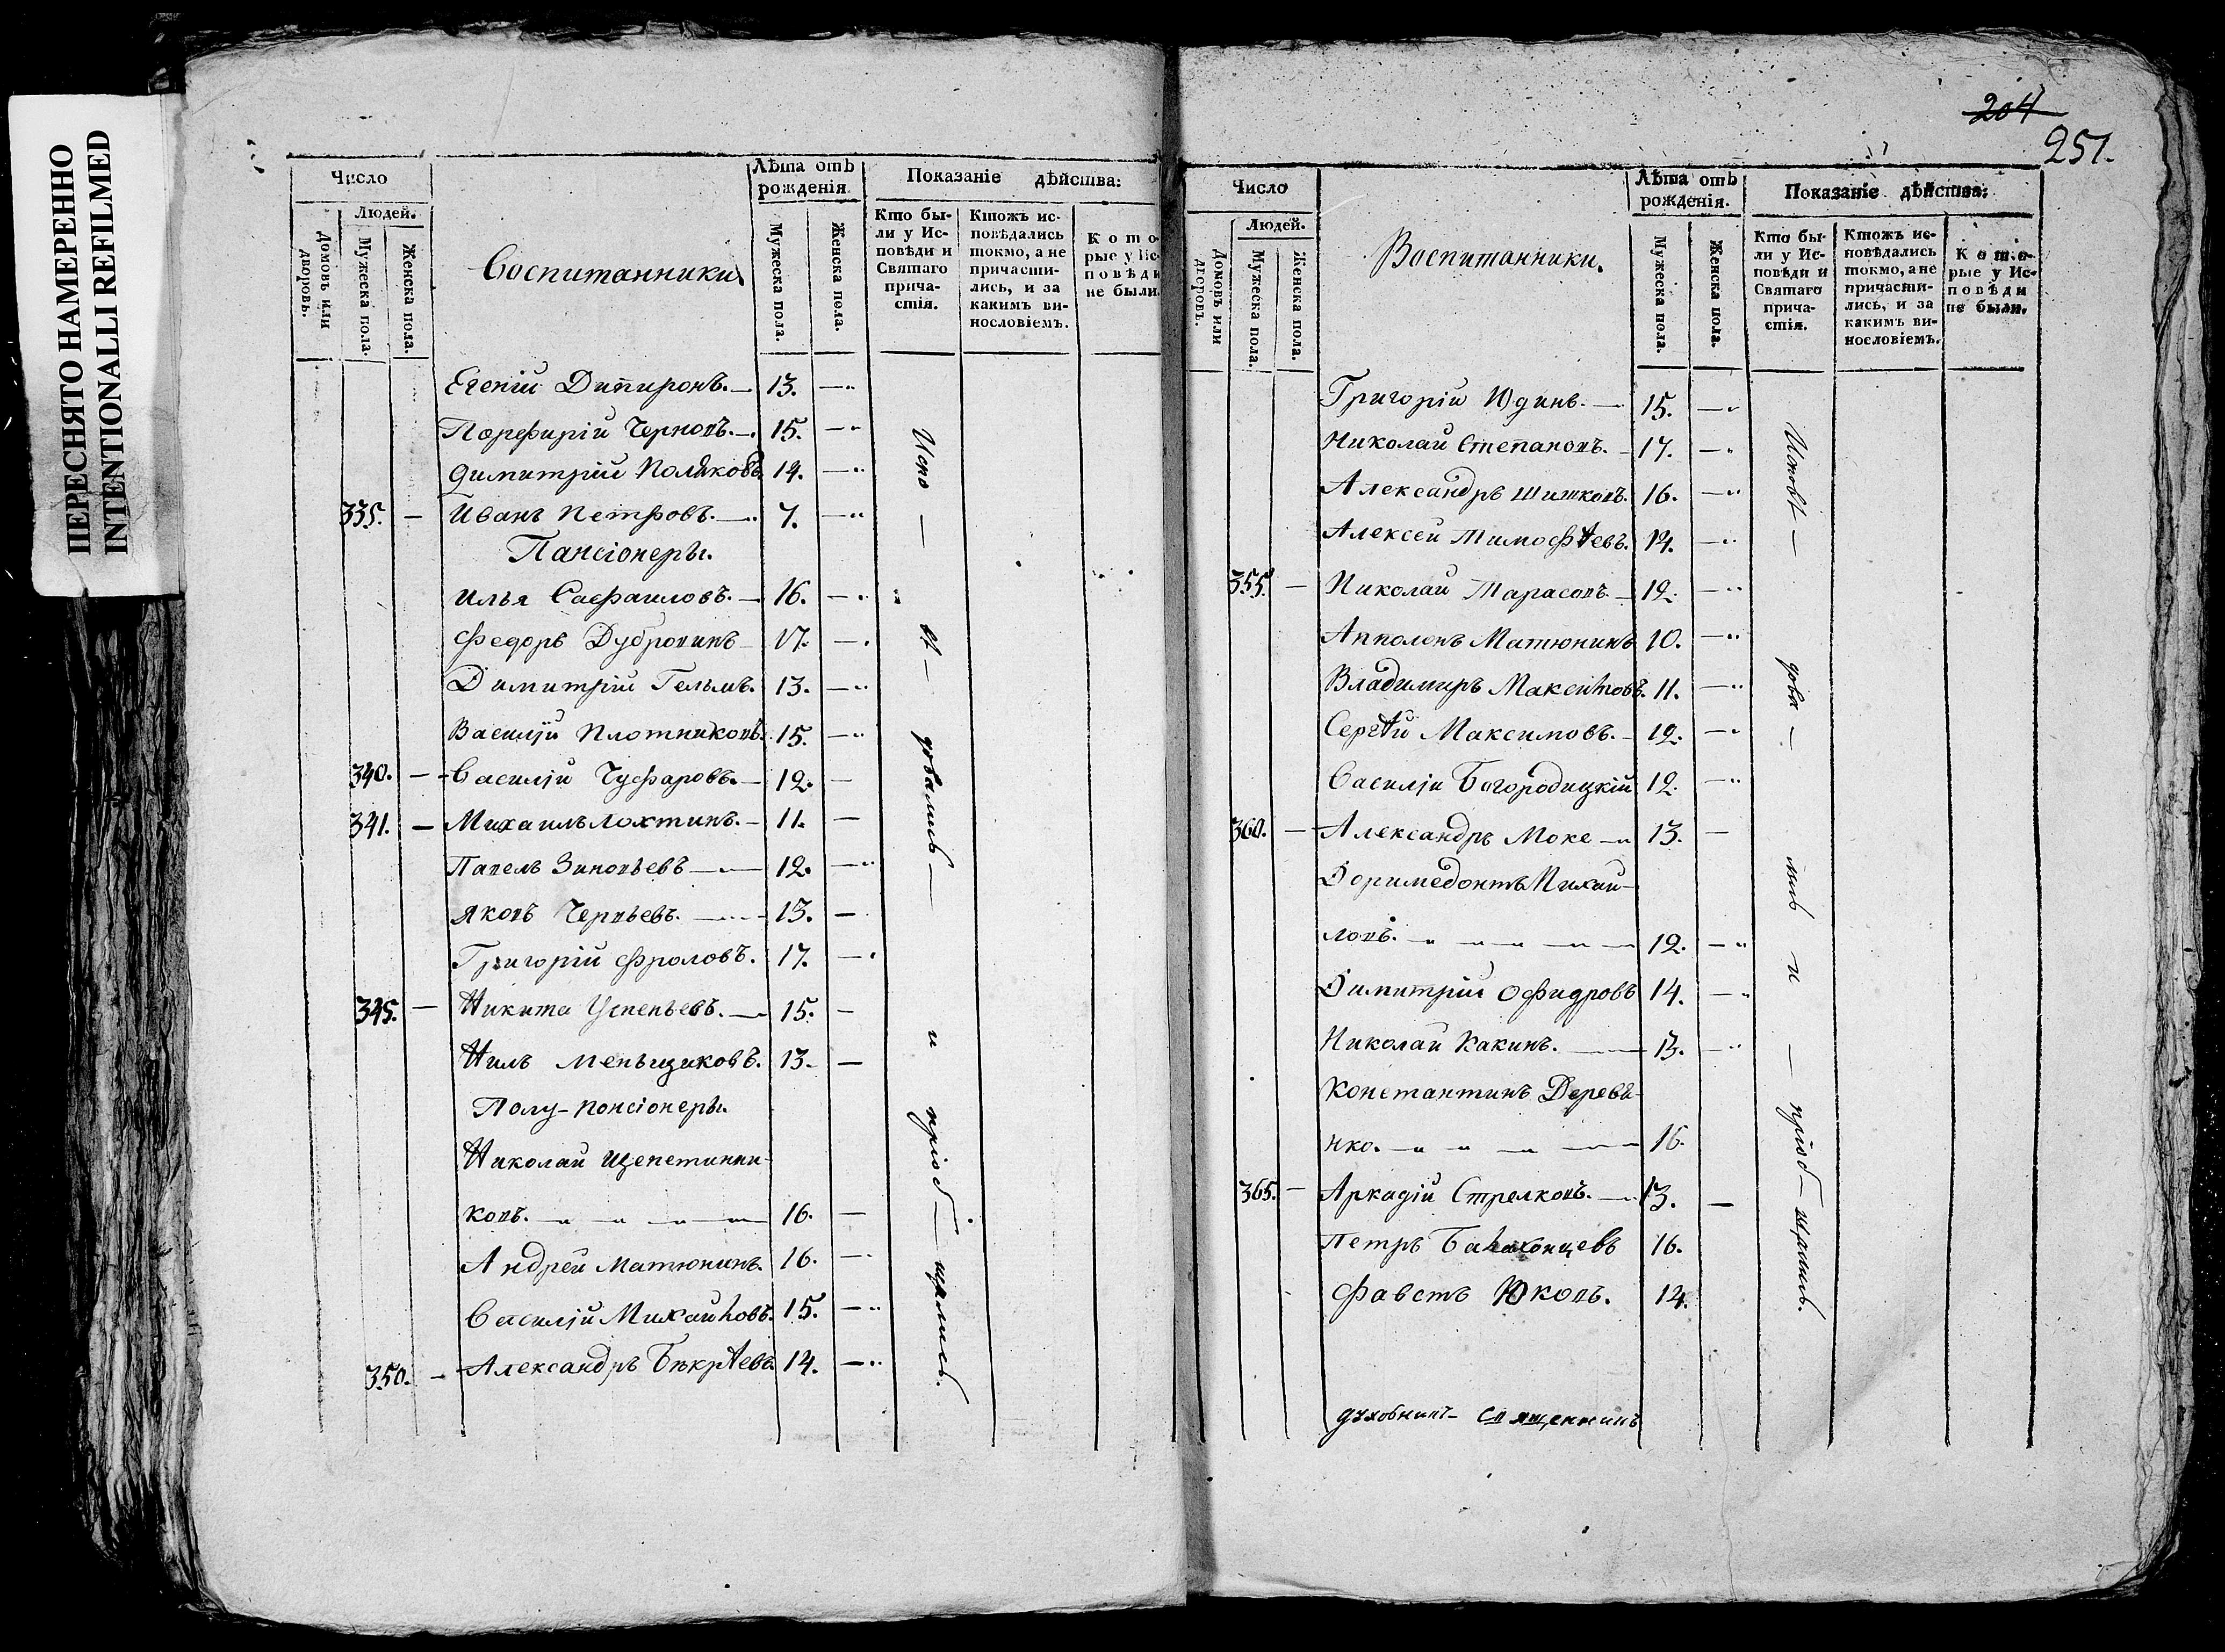 ПЕРЕСНЯТО НАМЕРЕННО
INTENTIONALLI REFILMED
Число
Людей.
Домовъ или дворовъ.
Мужеска пола.
Женска пола.
Воспитанники
Лѣта отъ рожденія.
Мужеска пола.
Женска пола.
Показаніе дѣйства:
Кто были у Исповѣди и Святаго причастія.
Ктожъ исповѣдались токмо, а не причастились, и за какимъ винословіемъ.
Которые у Исповѣди не были.
Евгеній Дипиронъ. — 13. —
Порфирій Черновъ. — 15. —
Димитрій Поляковъ 14. —
335. — Иванъ Петровъ. — 7. —
Пансіонеры.
Илья Сафаиловъ. — 16. —
Федоръ Дубровинъ — 17. —
Димитрій Гельмъ. 13. —
Василій Плотниковъ. 15. —
340. — Василій Чуфаровъ. — 12. —
341. — Михаилъ Лохтинъ. — 11. —
Павелъ Зиновьевъ — 12. —
Яковъ Черньевъ. — 13. —
Григорій Фроловъ. 17. —
345. — Никита Успеньевъ. — 15. —
Нилъ Меньщиковъ. 13. —
Полу-понсіонеры.
Николай Щепетинни-
ковъ. — 16. —
Андрей Матюнинъ. 16. —
Василій Михайловъ. 15. —
350. — Александръ Бѣкрѣевъ 14. —
Испо — вѣ — довались — и пріоб — щались.
204
251.
Число
Людей.
Домовъ или дворовъ.
Мужеска пола.
Женска пола.
Воспитанники.
Лѣта отъ рожденія.
Мужеска пола.
Женска пола.
Показаніе дѣйства:
Кто были у Исповѣди и Святаго причастія.
Ктожъ исповѣдались токмо, а не причастились, и за какимъ винословіемъ.
Которые у Исповѣди не были.
Григорій Юдинъ. — 15. —
Николай Степановъ. — 17. —
Александръ Шишковъ. 16. —
Алексей Тимофѣевъ. 14. —
355. — Николай Тарасовъ. — 12. —
Апполонъ Матюнинъ 10. —
Владимиръ Макситовъ. 11. —
Сергѣй Максимовъ. — 12. —
Василій Богородицкій 12. —
360. — Александръ Моке — 13. —
Доримедонтъ Михай-
ловъ. — 12. —
Димитрій Офидровъ 14. —
Николай Какинъ. — 13. —
Константинъ Деревя-
нко. — 16.
365. — Аркадій Стрелковъ. — 13. —
Петръ 16.
Фавстъ Юковъ. 14.
Исповѣ — дова — лись и — пріоб — щались.
Духовникъ — Священникъ